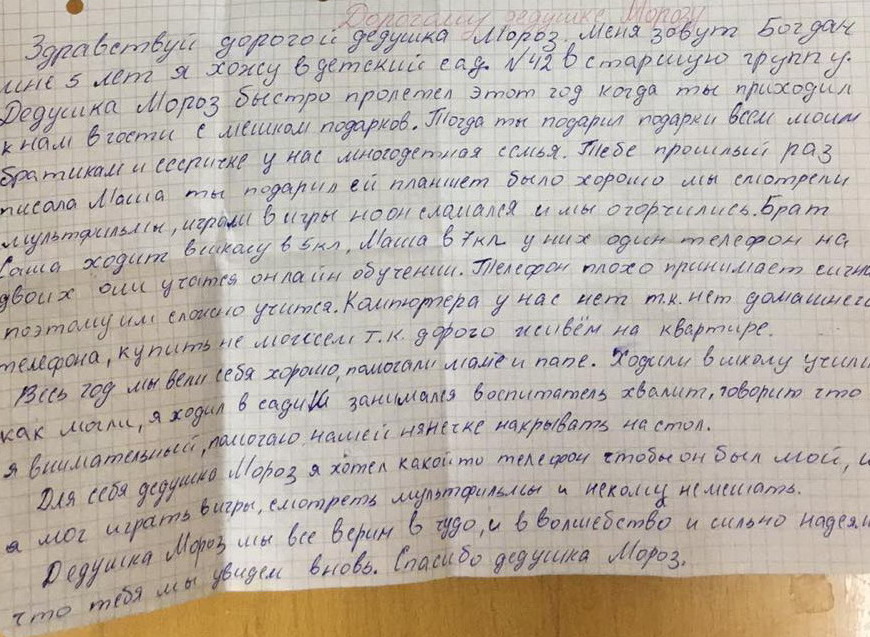 Дорогому дедушке Морозу
Здравствуй дорогой дедушка Мороз. Меня зовут Богдан
мне 5 лет я хожу в детский сад. N 42 в старшую группу.
Дедушка Мороз быстро пролетел этот год когда ты приходил
к нам в гости с мешком подарков. Тогда ты подарил подарки всем моим
братикам и сестричке у нас многодетная семья. Тебе прошлый раз
писала Маша ты подарил ей планшет было хорошо мы смотрели
мультфильмы, играли в игры но он сламался и мы огорчились. Брат
Саша ходит в школу в 5 кл, Маша в 7 кл у них один телефон на
двоих они учатся онлайн обучении. Телефон плохо принимает сигна
поэтому им сложно учится. Компютера у нас нет т.к. нет домашнего
телефона, купить не можем т.к. дорого живём на квартире.
Весь год мы вели себя хорошо, помогали маме и папе. Ходили в школу учили
как могли, я ходил в садик занимался воспитатель хвалит, говорит что
я внимательный, помогаю нашей нянечке накрывать на стол.
Для себя дедушка Мороз я хотел какой то телефон чтобы он был мой, и
я мог играть в игры, смотреть мультфильмы и некому не мешать.
Дедушка Мороз мы все верим в чудо, и в волшебство и сильно надеем
что тебя мы увидем вновь. Спасибо дедушка Мороз.